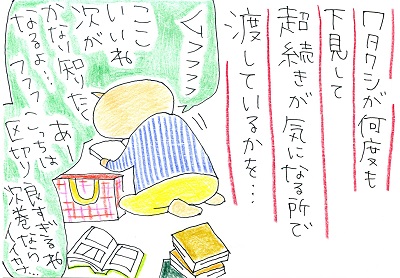 ワタクシが何度も
下見して
超続きが気になる所で
渡しているかを…
ここ
いいね
次が
かなり知りた
なるよ…
フフフ
あー
こっちは
区切り
良すぎるね
次巻なら
イイやっ…